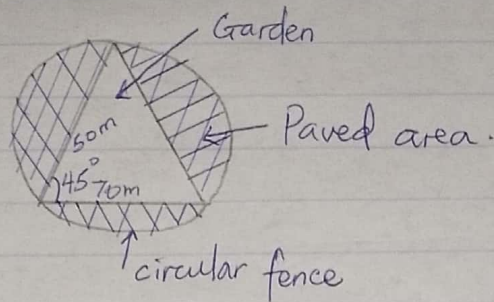 Garden
50m
Paved area.
45°
70m
circular fence